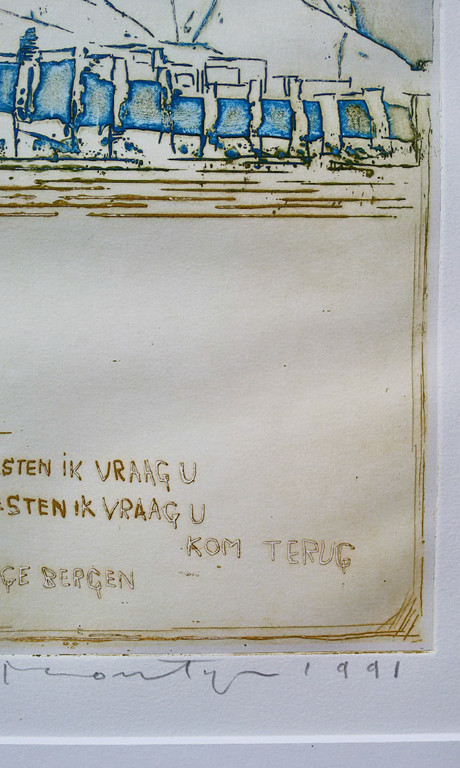 STEN iK VRAAG U
STEN IK VRAAG U
KOM TERUG
GE BERGEN
1991